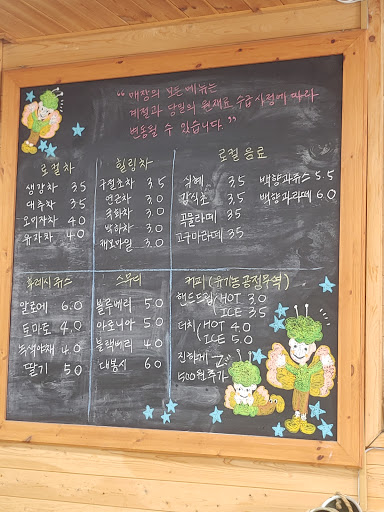 "매장의 모든 메뉴는
계절과 당일의 원재료 수급사정에 따라
변동될 수 있습니다."
로컬차
생강차 3.5
대추차 3.5
오미자차 4.0
유자차 4.0
힐링차
구절초차 3.5
연근차 3.0
국화차 3.0
박하차 3.0
캐모마일 3.0
로컬 음료
식혜 3.5
감식초 3.5
곡물라떼 3.5
고구마라떼 3.5
백향과쥬스 5.5
백향과라떼 6.0
후레시 쥬스
알로에 6.0
토마토 4.0
녹색야채 4.0
딸기 5.0
스무디
블루베리 5.0
아로니아 5.0
블랙베리 4.0
대봉시 6.0
커피 (유기농 공정무역)
핸드드립 (HOT 3.0
(ICE 3.5
더치 (HOT 4.0
(ICE 5.0
진하게
500원 추가